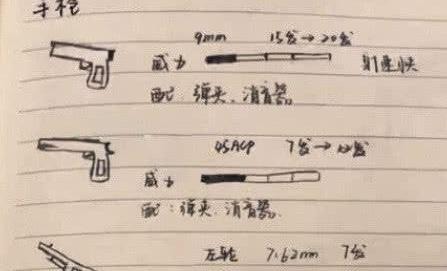 手枪
9mm 15发→20发
威力 射速快
配：弹夹、消音器
45ACP 7发→12发
威力
配：弹夹、消音器
左轮 7.62mm 7发